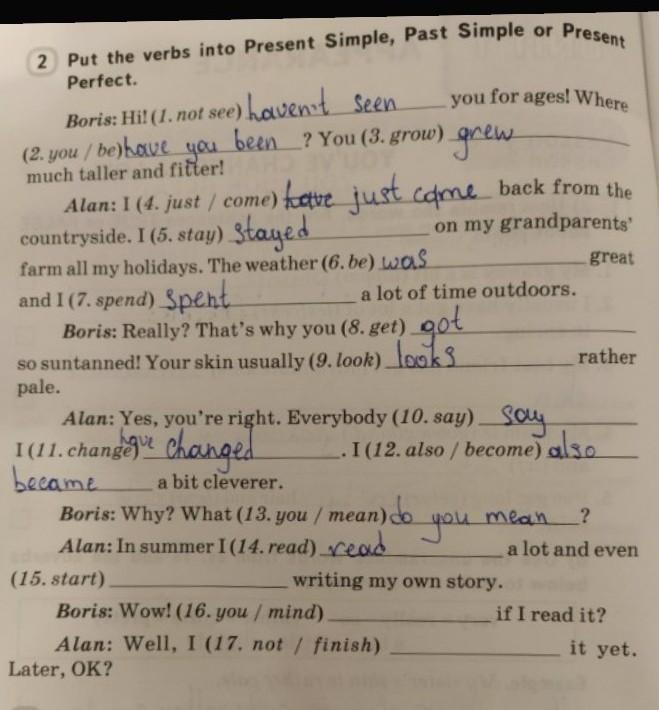 2 Put the verbs into Present Simple, Past Simple or Present
Perfect.
Boris: Hi! (1. not see) haven't seen you for ages! Where
(2. you / be) have you been ? You (3. grow) grew
much taller and fitter!
Alan: I (4. just / come) have just come back from the
countryside. I (5. stay) stayed on my grandparents'
farm all my holidays. The weather (6. be) was great
and I (7. spend) spent a lot of time outdoors.
Boris: Really? That's why you (8. get) got
so suntanned! Your skin usually (9. look) looks rather
pale.
Alan: Yes, you're right. Everybody (10. say) say
I (11. change) have changed . I (12. also / become) also
became a bit cleverer.
Boris: Why? What (13. you / mean) do you mean ?
Alan: In summer I (14. read) read a lot and even
(15. start) writing my own story.
Boris: Wow! (16. you / mind) if I read it?
Alan: Well, I (17. not / finish) it yet.
Later, OK?